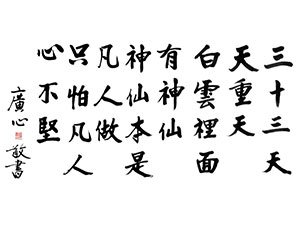 三十三天
天重天
白雲裡面
有神仙
神仙本是
凡人做
只怕凡人
心不堅
廣心敬書